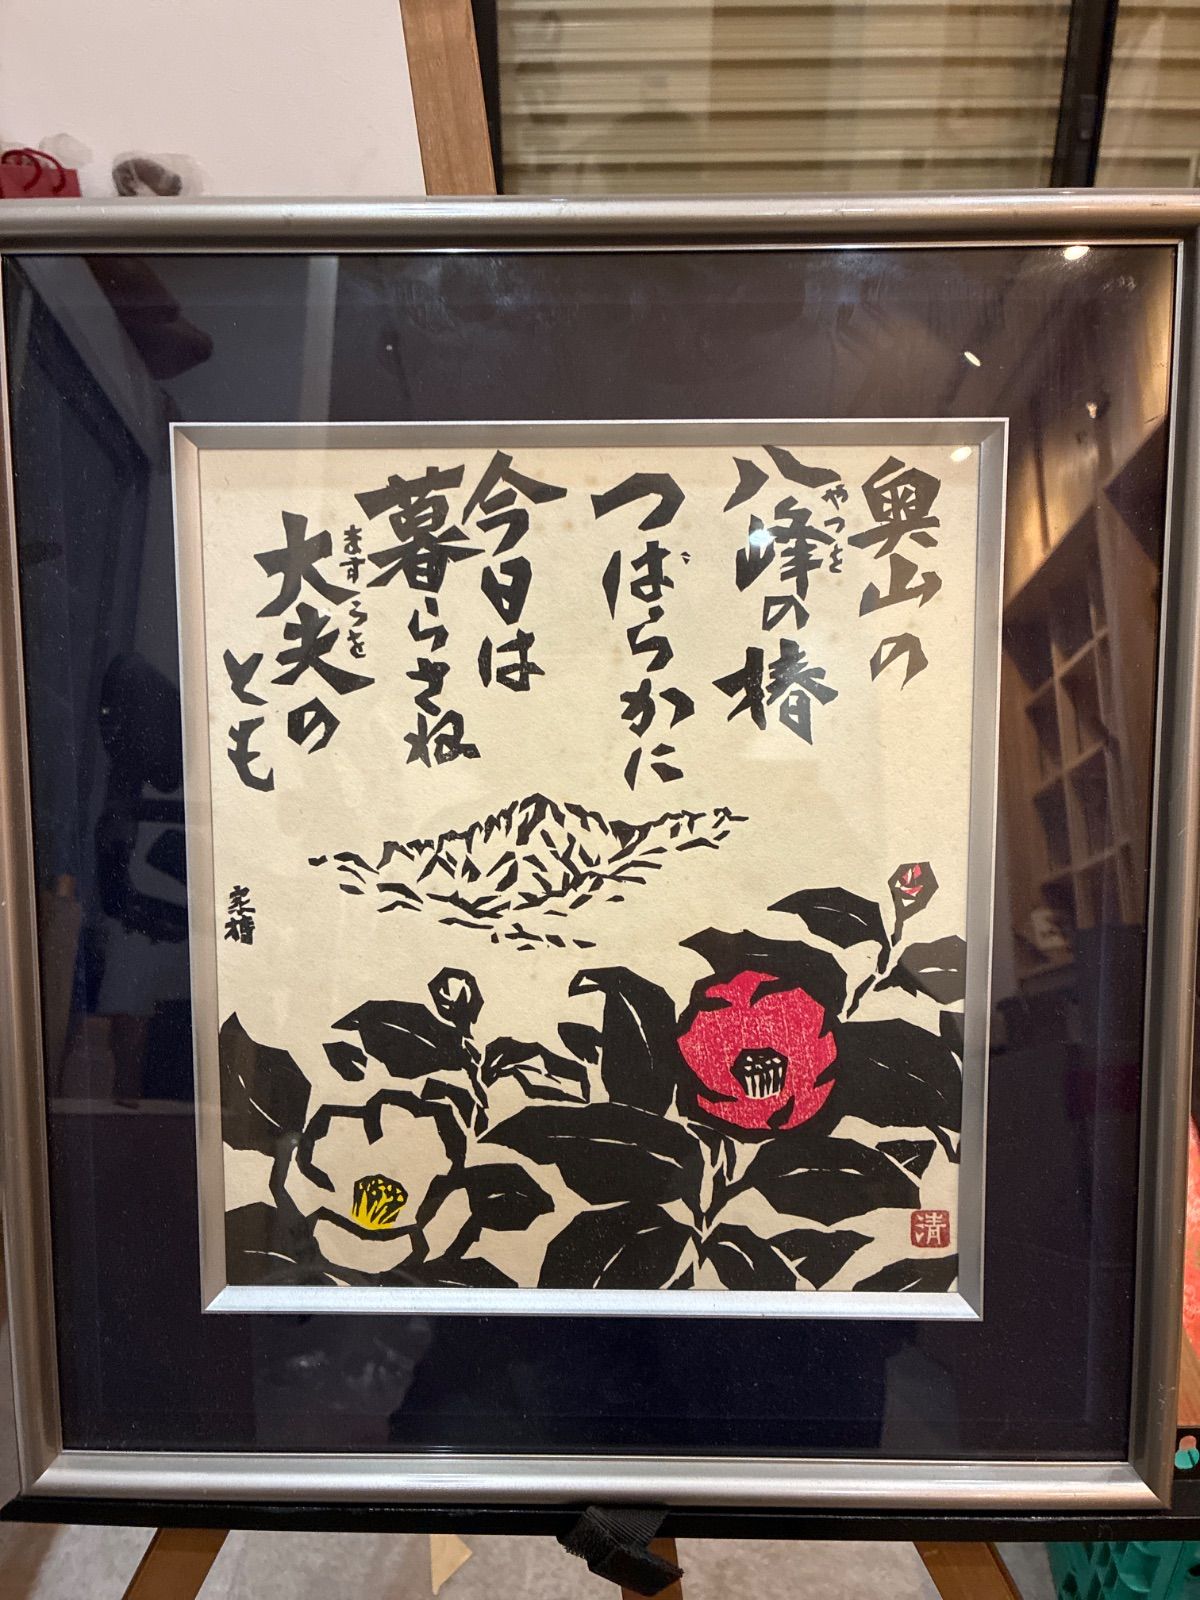 奥山の
八峰の椿
やつを
つばらかに
今日は
暮らさね
大夫の
ますらを
とも
家持
清